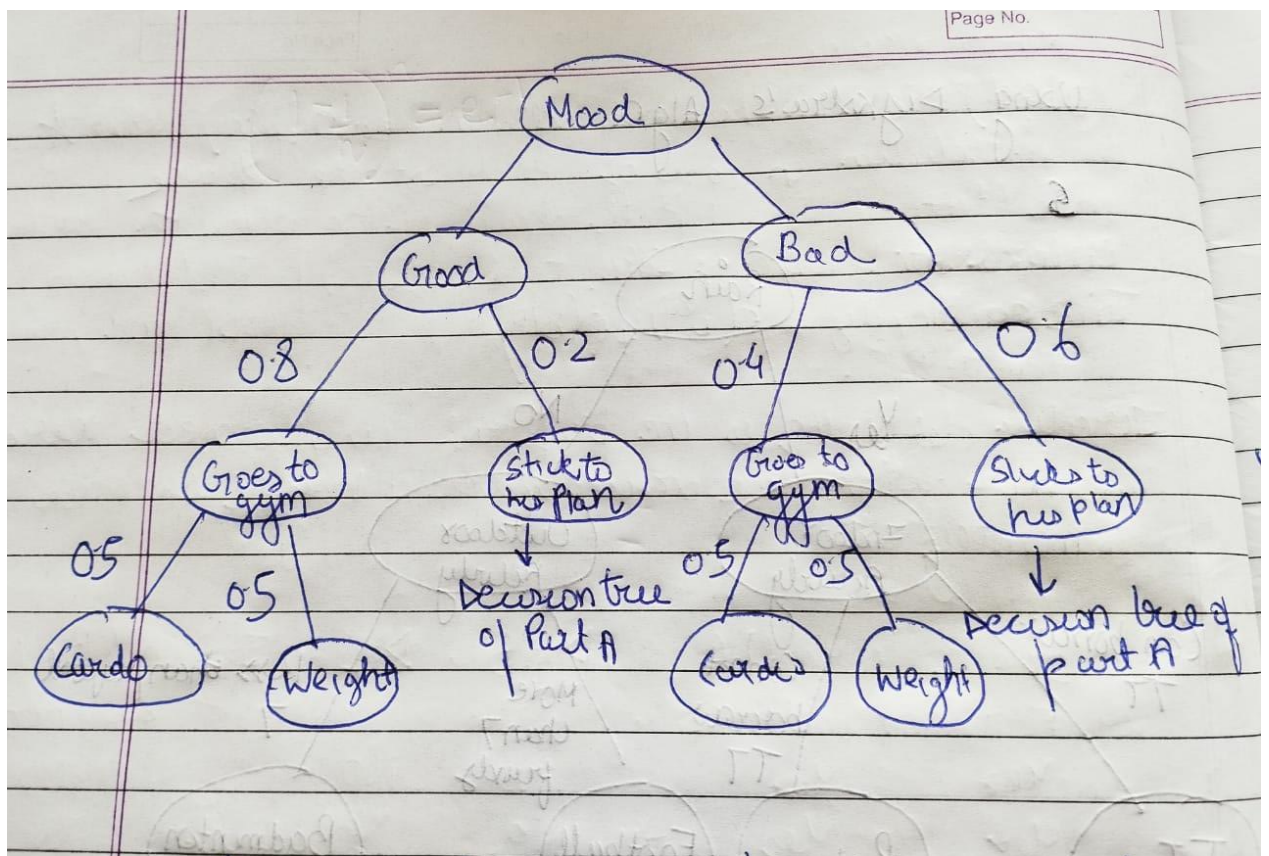 Page No.
Mood
Good
Bad
0.8
0.2
0.4
0.6
Goes to
gym
Stick to
his plan
Goes to
gym
Sticks to
his plan
0.5
0.5
Decision tree
of Part A
0.5
0.5
Decision tree of
part A
Cardo
Weight
Cardio
Weight